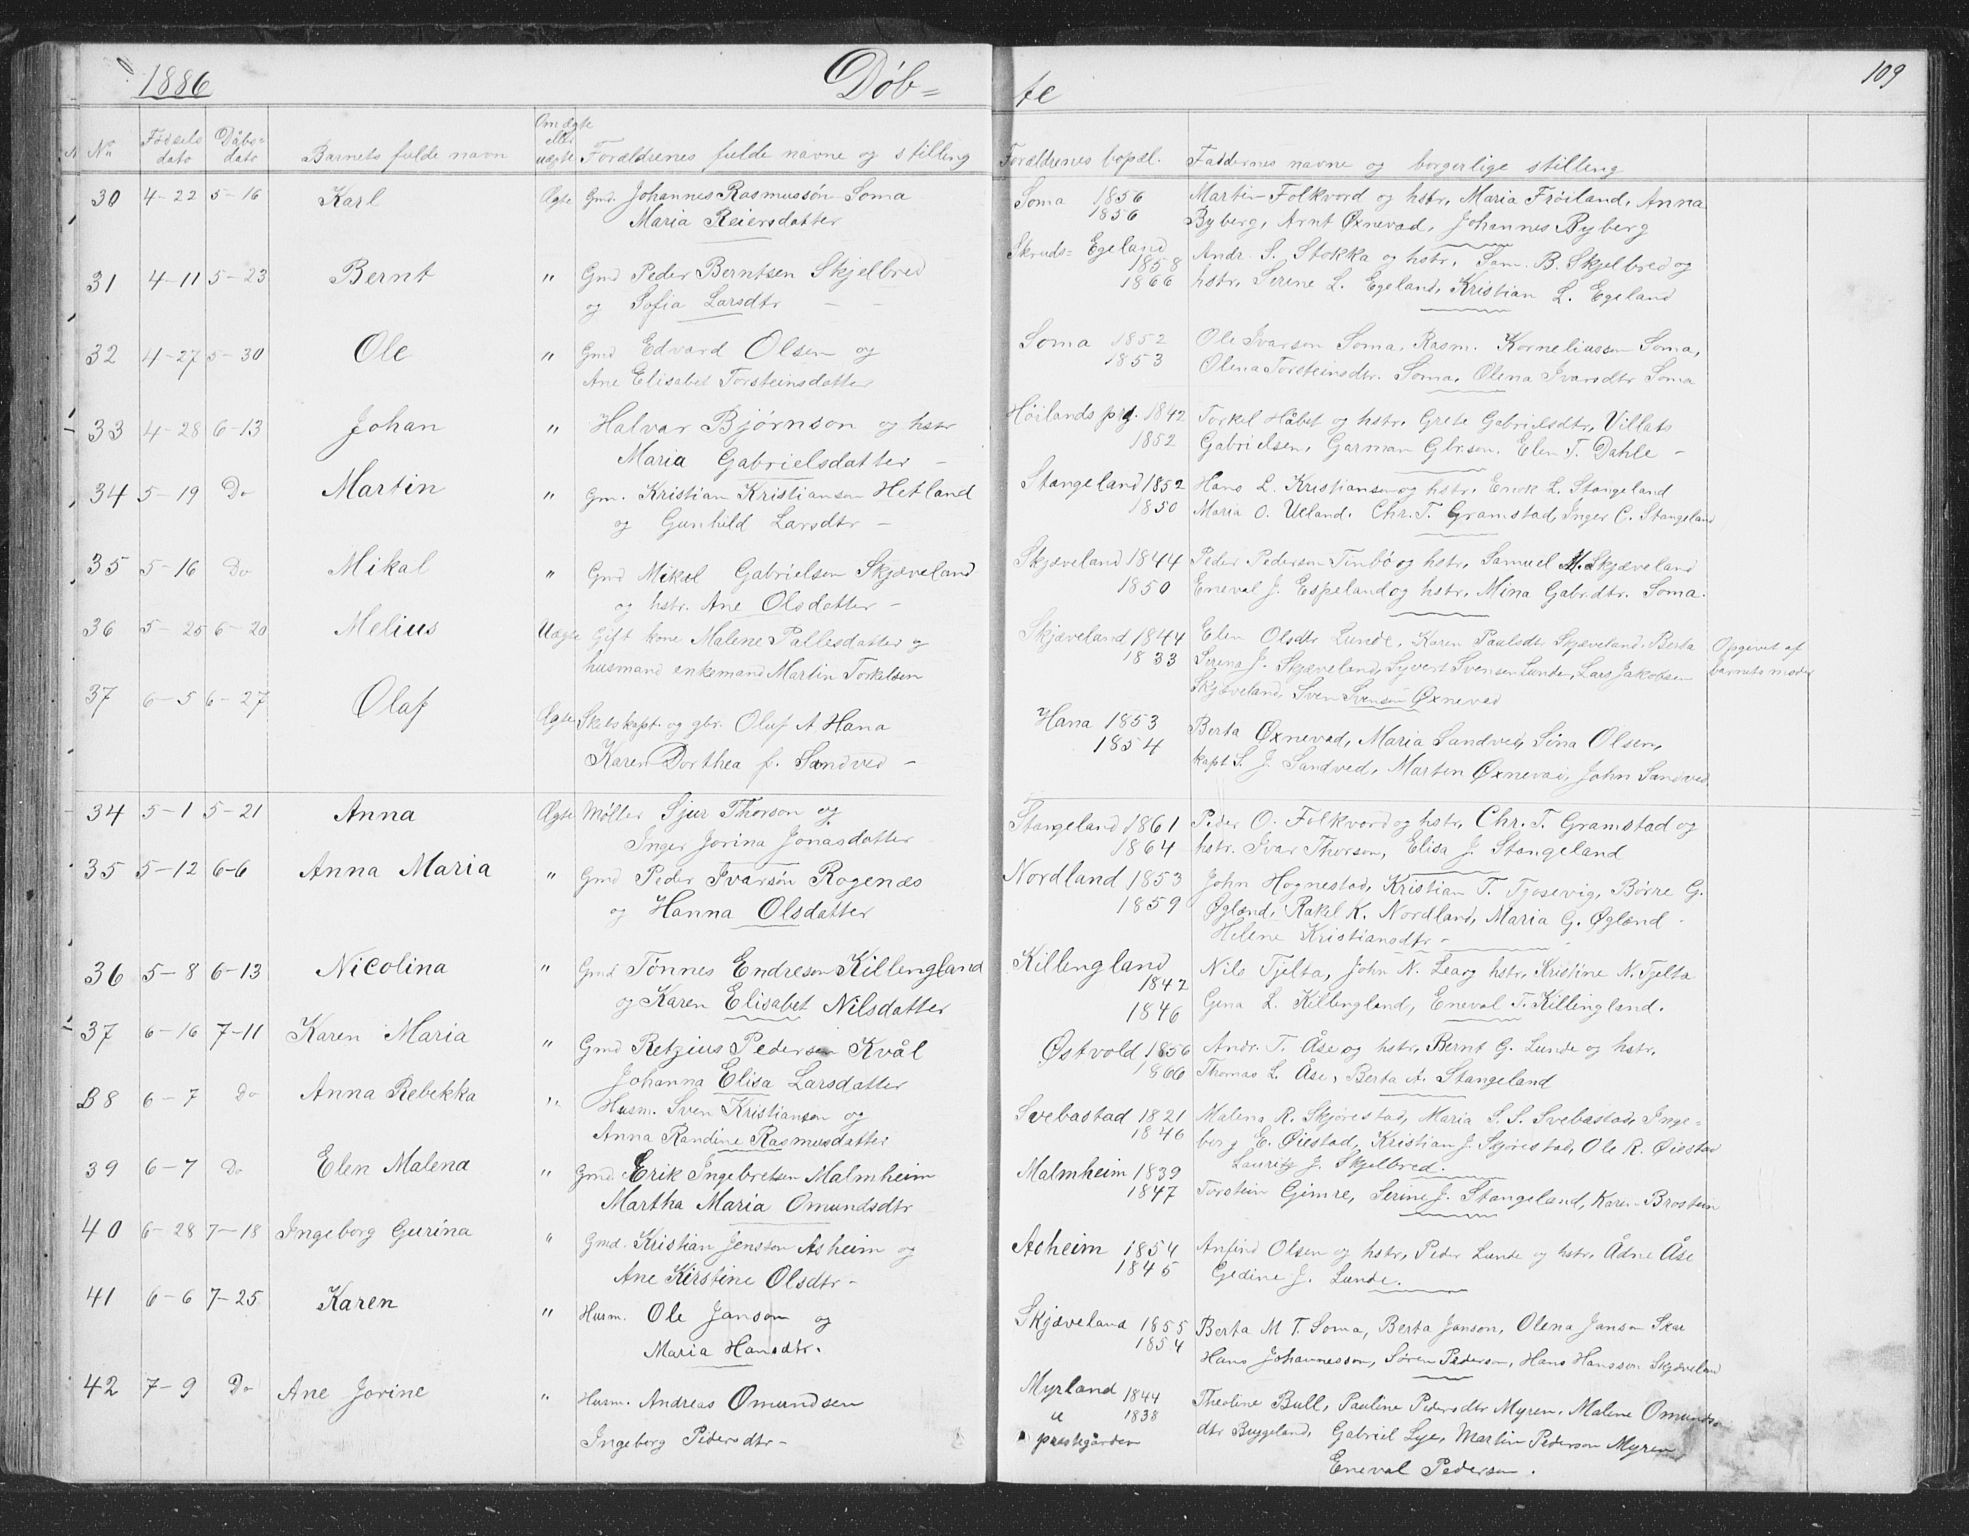 1886 Døb= te 109
No Fødsels dato Dåbs= dato Barnets fulde navn Om ægte eller uægte Forældrenes fulde navne og stilling Forældrenes bopæl. Faddernes navne og borgerlige stilling
30 4-22 5-16 Karl Ægte Gmd. Johannes Rasmussön Soma Soma 1856 Martin Folkvord og hstr, Maria Fröiland, Anna
Maria Reiersdatter 1856 Byberg, Arnt Øxnevad, Johannes Byberg
31 4-11 5-23 Bernt " Gmd Peder Berntsen Skjelbred Skruds= Egeland 1858 Andr. S. Stokka og hstr, Sam. B. Skjelbred og
og Sofia Larsdtr 1866 hstr, Serine L. Egeland, Kristian L. Egeland
32 4-27 5-30 Ole " Gmd Edvard Olsen og Soma 1852 Ole Ivarson Soma, Rasm. Korneliassen Soma,
Ane Elisabet Torsteinsdatter 1853 Olena Torsteinsdtr. Soma, Olena Ivarsdtr Soma
33 4-28 6-13 Johan " Halvar Bjørnson og hstr Höilands prg. 1842 Torkel Håbet og hstr, Grete Gabrielsdtr, Villats
Maria Gabrielsdatter - 1852 Gabrielsen, Garman Gbrson. Elen T. Dahle -
34 5-19 Do Martin " Gm. Kristian Kristiansen Hetland Stangeland 1852 Hans L. Kristiansen og hstr, Enok L. Stangeland
og Gunhild Larsdtr - 1850 Maria O. Ueland. Chr. T. Gramstad, Inger C. Stangeland
35 5-16 Do Mikal " Gmd Mikal Gabrielsen Skjæveland Skjæveland 1844 Peder Pedersen Tinbö og hstr, Samuel M. Skjæveland
og hstr. Ane Olsdatter - 1850 Eneval J. Espeland og hstr, Mina Gabr.dtr. Soma.
36 5-25 6-20 Melius Uægte Gift kone Malene Pallesdatter og Skjæveland 1844 Elen Olsdtr Lunde, Karen Paulsdtr Skjæveland, Berta Opgivet af
husmand enkemand Martin Torkelsen 1833 Serina J. Skjæveland, Syvert Svensen Lunde, Lars Jakobsen barnets moder
Skjæveland, Sven Svensen Øxnevad
37 6-5 6-27 Olaf Ægte Skibskapt. og gbr. Oluf A Hana Hana 1853 Berta Øxnevad, Maria Sandved, Sina Olsen,
Karen Dorthea f. Sandved - 1854 kapt S. J. Sandved, Martin Øxnevad, John Sandved
34 5-1 5-21 Anna Ægte Møller Sjur Thorson og Stangeland 1861 Peder O. Folkvord og hstr, Chr. T. Gramstad og
Inger Jorina Jonasdatter 1864 hstr. Ivar Thorson, Elisa J. Stangeland
35 5-12 6-6 Anna Maria " Gmd Peder Ivarsön Rogenæs Nordland 1853 John Hognestad, Kristian T. Tjosevig, Börre G.
og Hanna Olsdatter 1859 Øglænd, Rakel K. Nordland, Maria G. Øglænd.
Helene Kristiansdtr -
36 5-8 6-13 Nicolina " Gmd Tönnes Endresen Killengland Killengland 1842 Nils Tjelta, John N. Leaog hstr, Kristine N. Tjelta
og Karen Elisabet Nilsdatter 1846 Gina L. Killengland, Eneval T. Killingland.
37 6-16 7-11 Karen Maria " Gmd Retzius Pedersen Kvål Østvold 1856 Andr. T. Åse og hstr, Bernt G. Lunde og hstr,
Johanna Elisa Larsdatter 1866 Thomas L. Åse, Berta A. Stangeland
38 6-7 Do Anna Rebekka " Husm. Sven Kristianson og Svebastad 1821 Malena R. Skjörestad, Maria S. S. Svebastad, Inge=
Anna Randine Rasmusdatter 1846 borg E. Öiestad, Kristian J. Skjörestad, Ole R. Øiestad
Lauritz J. Skjelbred.
39 6-7 Do Elen Malena " Gmd Erik Ingebretsen Malmheim Malmheim 1839 Torstein Gimre, Serine J. Stangeland, Karen Brostein
Martha Maria Omundsdtr 1847
40 6-28 7-18 Ingeborg Gurina " Gmd. Kristian Jensson Asheim og Asheim 1854 Anfind Olsen og hstr, Peder Lunde og hstr, Ådne Åse
Ane Kirstine Olsdtr - 1845 Gjedine J. Lunde.
41 6-6 7-25 Karen " Husm. Ole Janson og Skjæveland 1855 Berta M T. Soma, Berta Janson, Olena Janson Skar
Maria Hansdtr. 1854 Hans Johannesson, Sören Pederson, Hans Hansson Skjæveland
42 7-9 Do Ane Jorine " Husm. Andreas Omundsen Myrland 1844 Theoline Bull, Pauline Pedersdtr Myren, Malene Omunds
Ingeborg Pedersdtr - u 1838 dtr Bryggeland, Gabriel Lye, Martin Pederson Myren
præstegården Eneval Pederson.